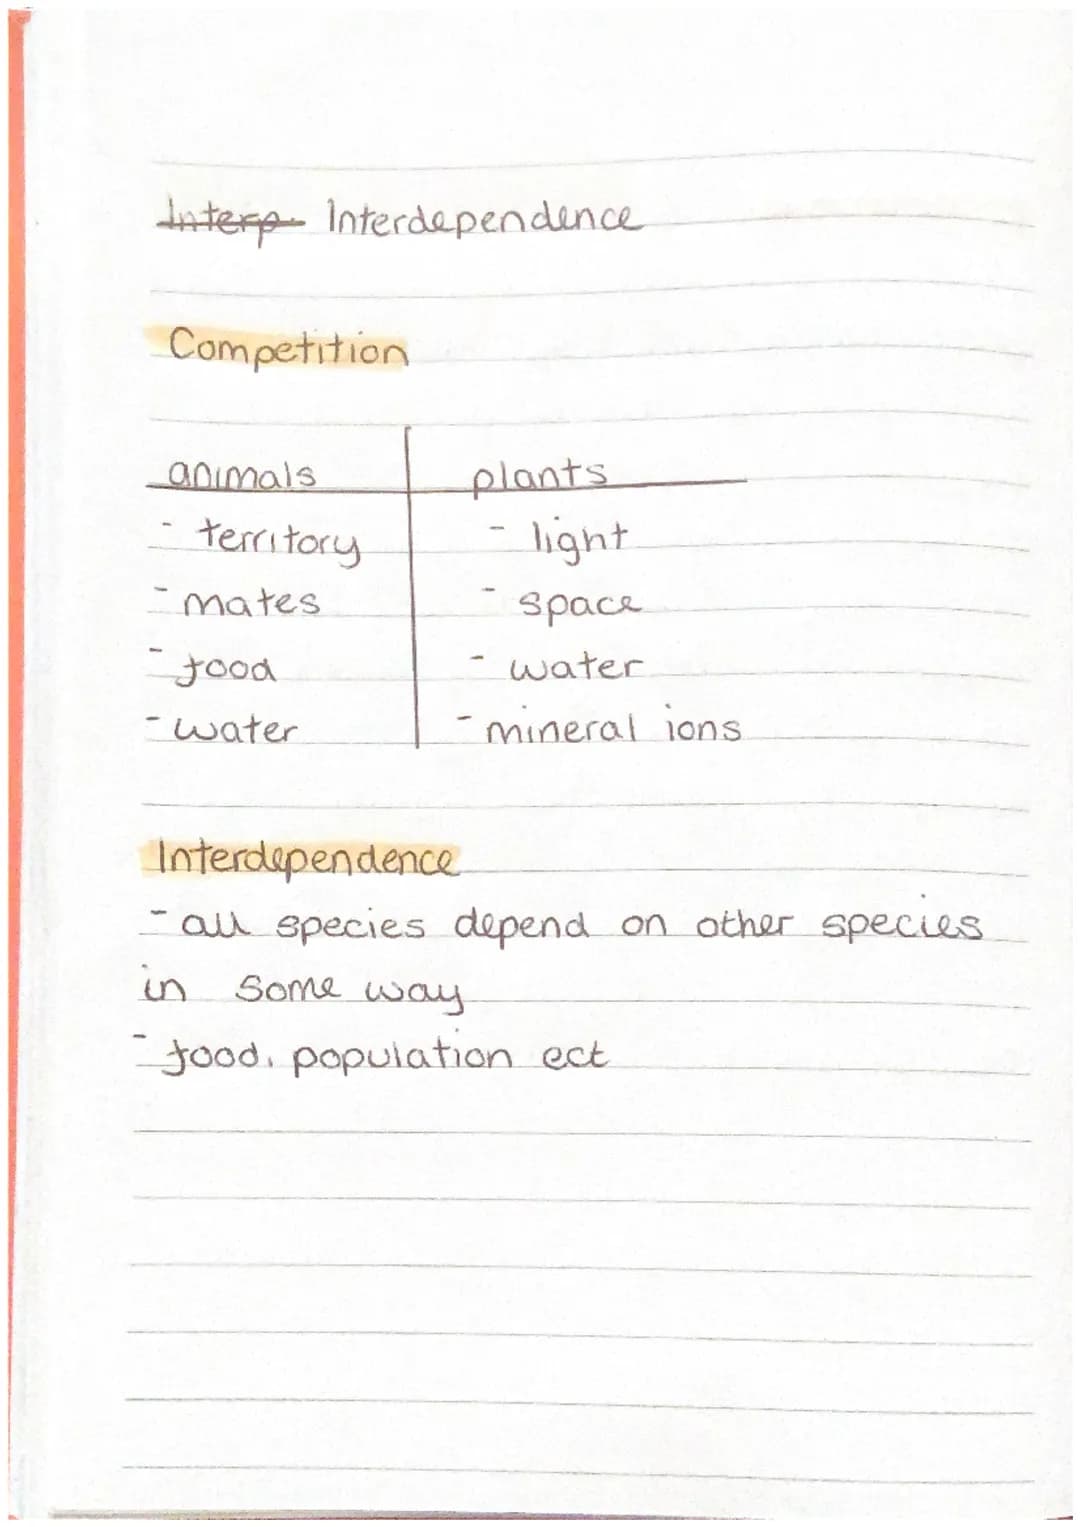 Interp Interdependence
Competition
animals plants
- territory - light
- mates - space
- food - water
- water - mineral ions
Interdependence
- all species depend on other species
in some way
- food, population ect